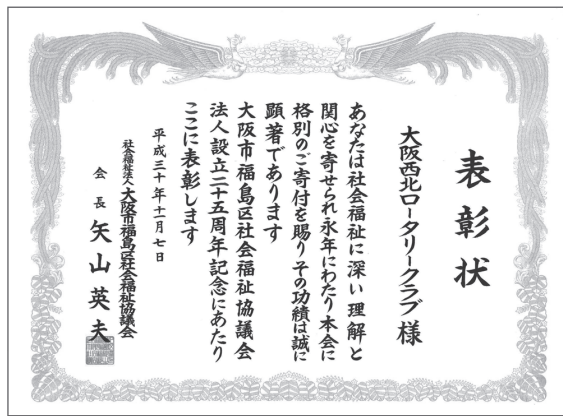 表彰状
大阪西北ロータリークラブ様
あなたは社会福祉に深い理解と
関心を寄せられ永年にわたり本会に
格別のご寄付を賜りその功績は誠に
顕著であります
大阪市福島区社会福祉協議会
法人設立二十五周年記念にあたり
ここに表彰します
平成三十年十一月七日
社会福祉法人大阪市福島区社会福祉協議会
会長 矢山英夫